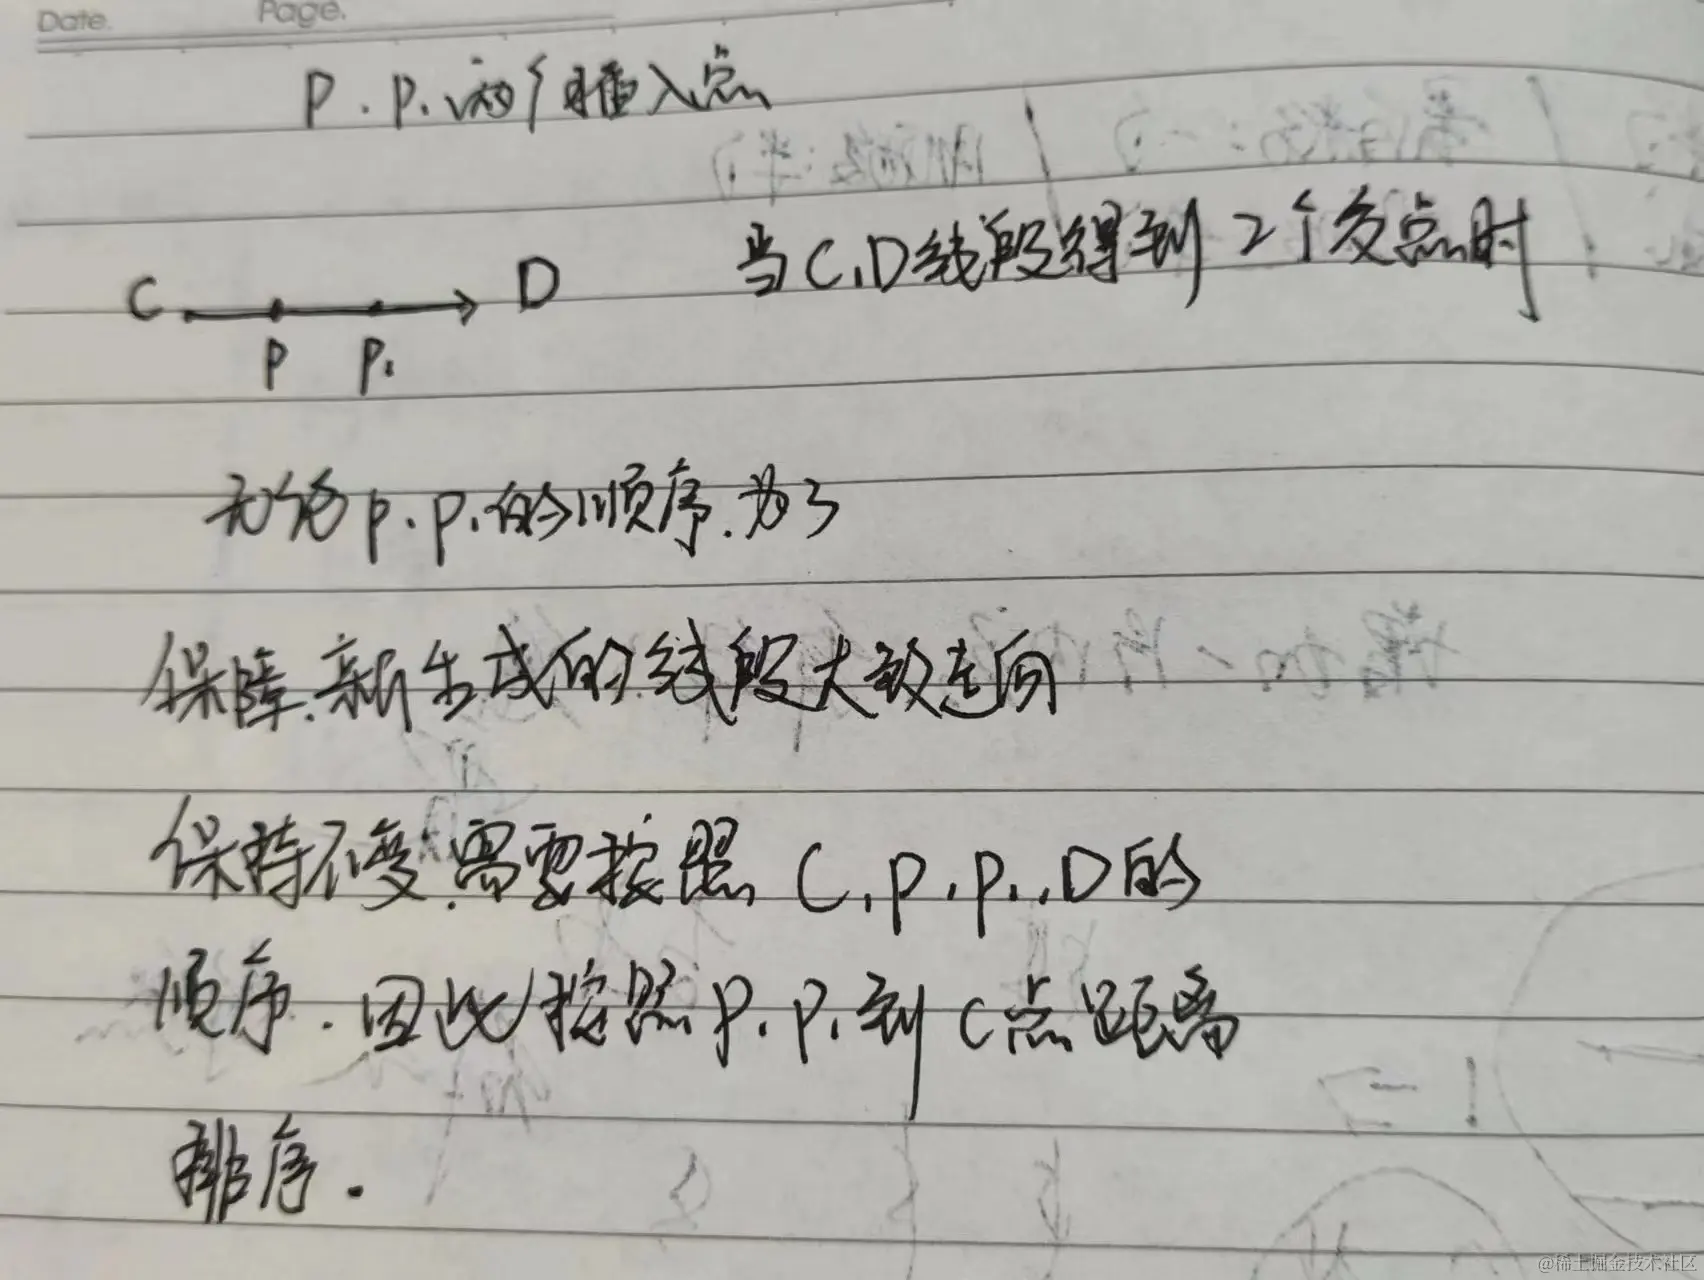 Date. Page.
P.P1两个插入点
当C,D线段得到2个交点时
C D
P P1
无论P.P1的顺序.为了
保障.新生成的线段大致走向
保持不变.需要按照C,P,P1,D的
顺序.因此按照P.P1到C点距离
排序.
@稀土掘金技术社区